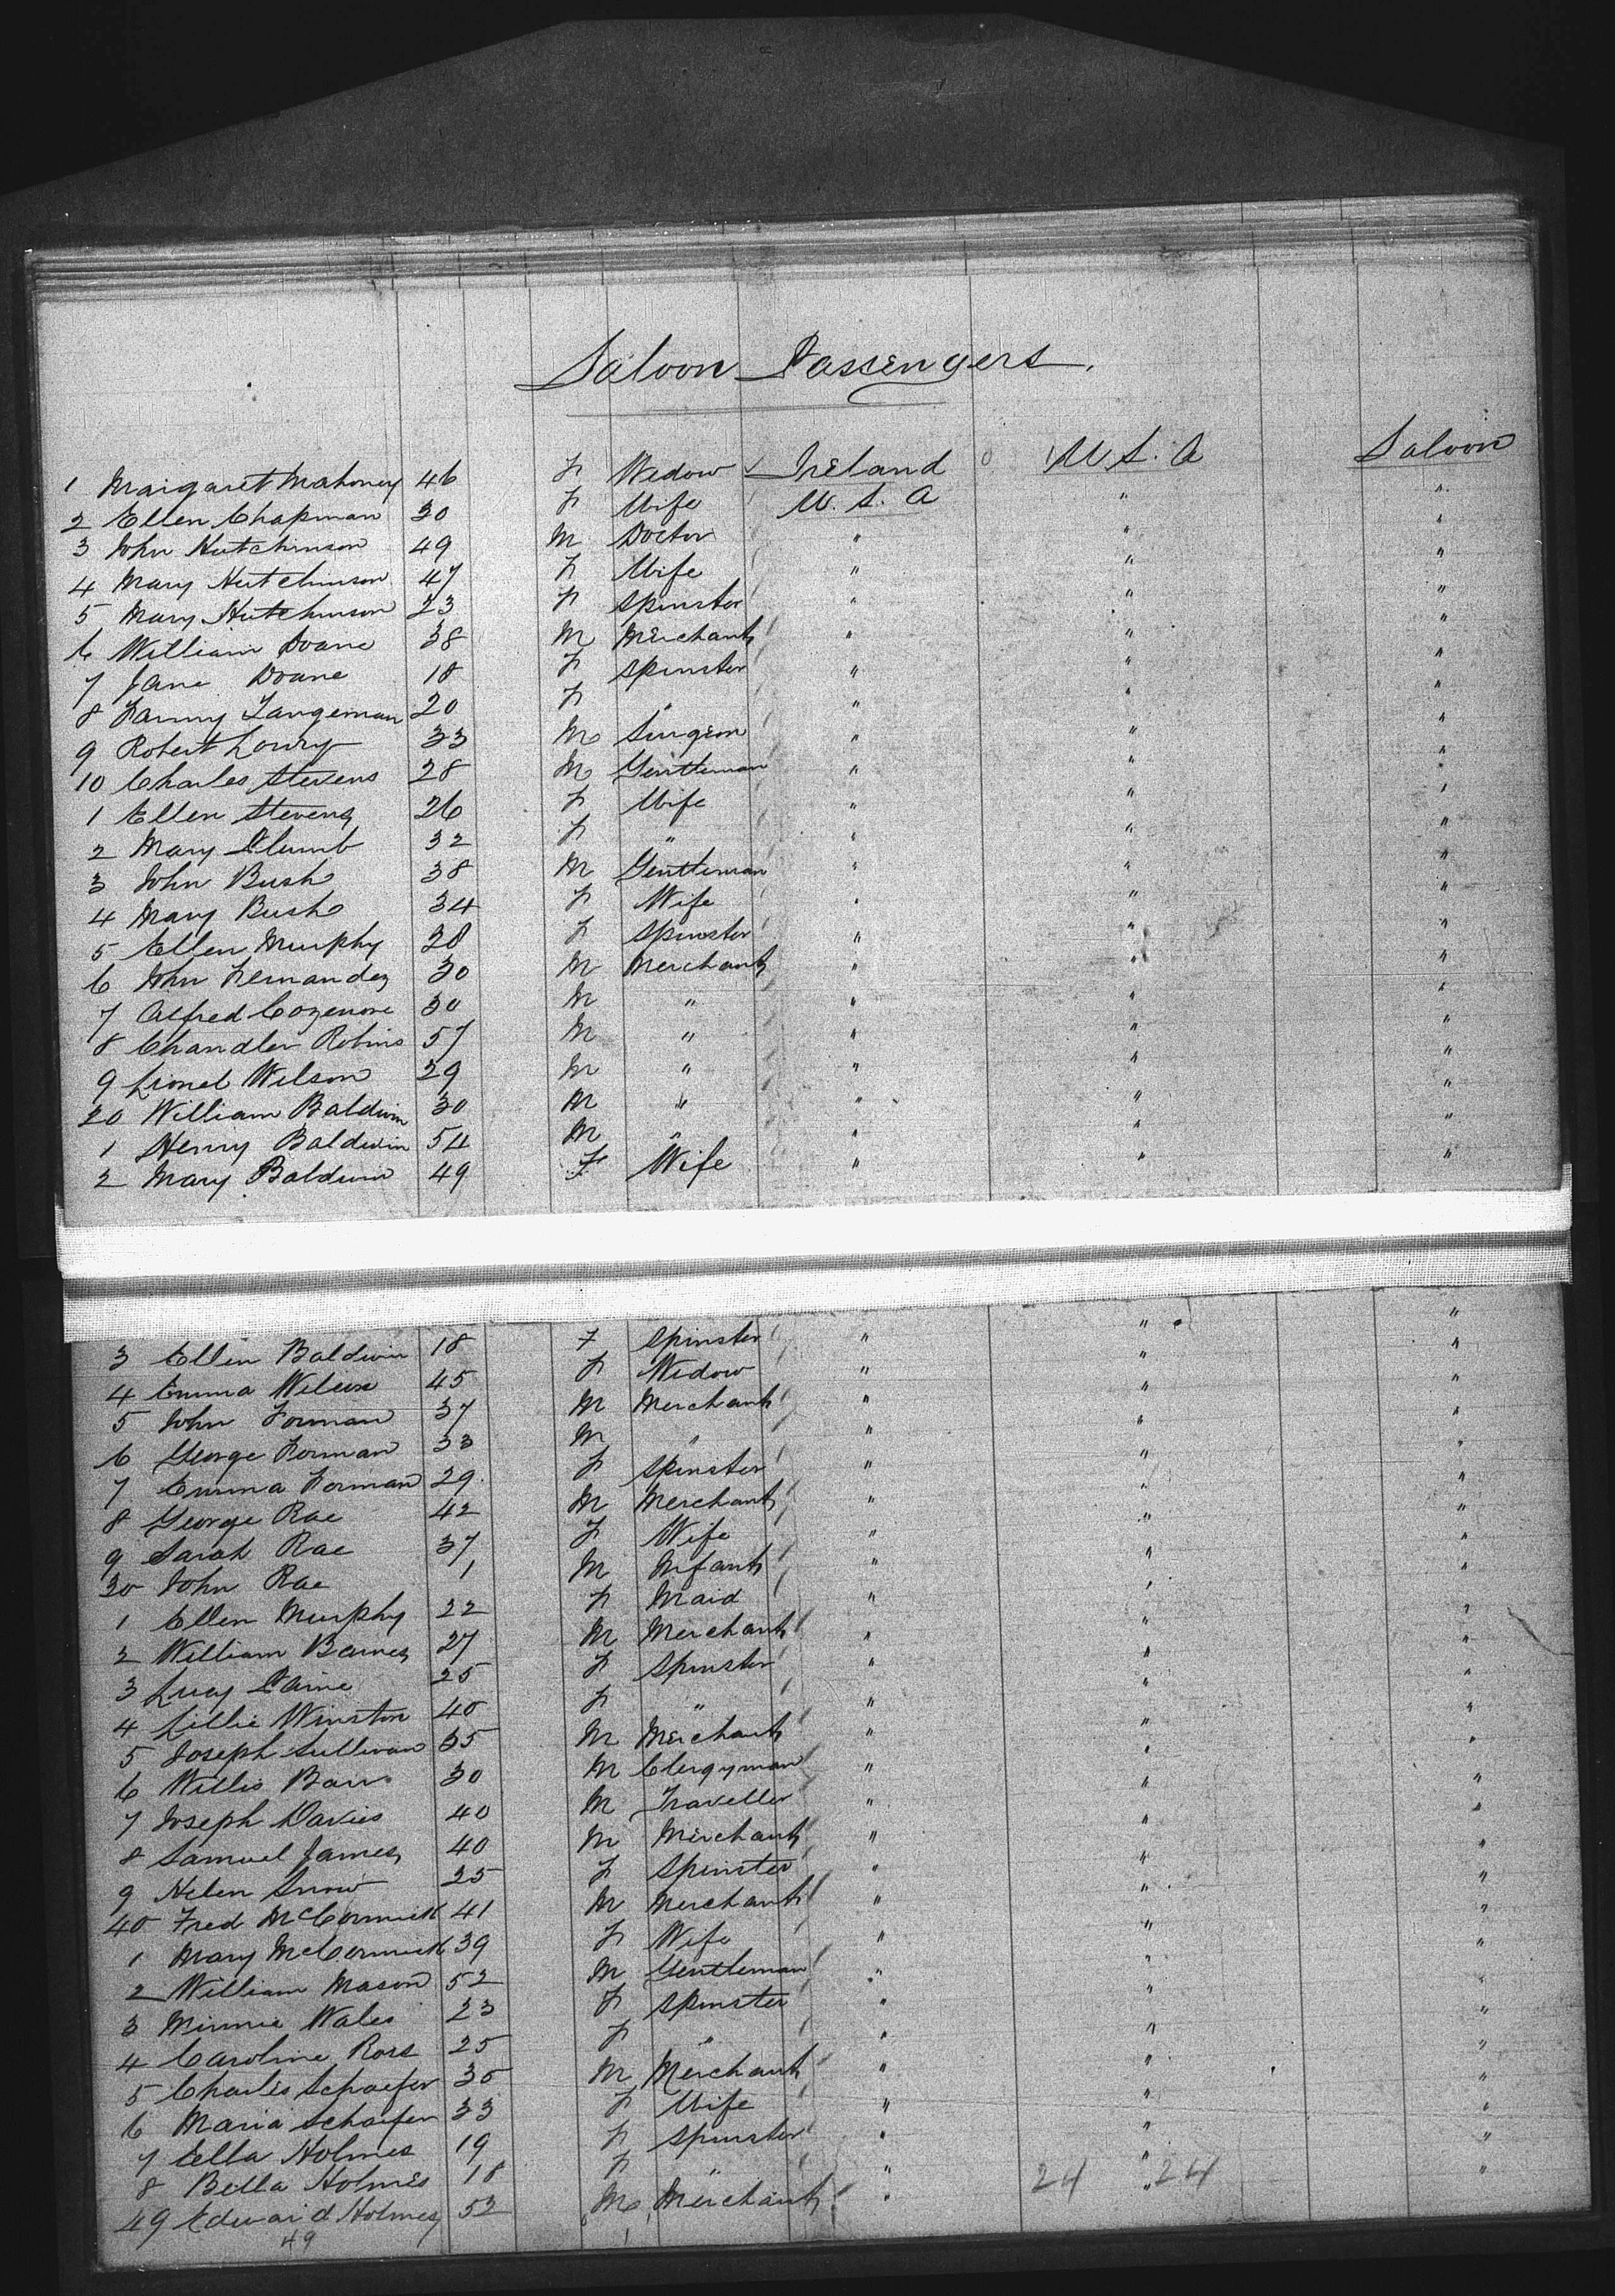 Saloon Passengers.
1 Margaret Mahoney 46 F Widow Ireland U.S.A Saloon
2 Ellen Chapman 30 F Wife U.S.A " "
3 John Hutchinson 49 M Doctor " " "
4 Mary Hutchinson 47 F Wife " " "
5 Mary Hutchinson 23 F Spinster " " "
6 William Doane 38 M Merchant " " "
7 Jane Doane 18 F Spinster " " "
8 Fanny Langeman 20 F " " " "
9 Robert Lowry 33 M Surgeon " " "
10 Charles Stevens 28 M Gentleman " " "
1 Ellen Stevens 26 F Wife " " "
2 Mary Plumb 32 F " " " "
3 John Bush 38 M Gentleman " " "
4 Mary Bush 34 F Wife " " "
5 Ellen Murphy 28 F Spinster " " "
6 John Fernandez 30 M Merchant " " "
7 Alfred 30 M " " " "
8 Chandler Robins 57 M " " " "
9 Lionel Wilson 29 M " " " "
20 William Baldwin 30 M " " " "
1 Henry Baldwin 54 M " " " "
2 Mary Baldwin 49 F Wife " " "
3 Ellen Baldwin 18 F Spinster " " "
4 Emma 45 F Widow " " "
5 John Forman 37 M Merchant " " "
6 George Forman 33 M " " " "
7 Emma Forman 29 F Spinster " " "
8 George Rae 42 M Merchant " " "
9 Sarah Rae 37 F Wife " " "
30 John Rae 1 M Infant " " "
1 Ellen Murphy 22 F Maid " " "
2 William Barnes 27 M Merchant " " "
3 Lucy Paine 25 F Spinster " " "
4 Lillie Winston 40 F " " " "
5 Joseph Sullivan 35 M Merchant " " "
6 Willis Barr 30 M Clergyman " " "
7 Joseph Davies 40 M Traveller " " "
8 Samuel James 40 M Merchant " " "
9 Helen Snow 25 F Spinster " " "
40 Fred McCormick 41 M Merchant " " "
1 Mary McCormick 39 F Wife " " "
2 William Mason 52 M Gentleman " " "
3 Minnie Wales 23 F Spinster " " "
4 Caroline Ross 25 F " " " "
5 Charles Schaefer 35 M Merchant " " "
6 Maria Schaefer 33 F Wife " " "
7 Ella Holmes 19 F Spinster " " "
8 Bella Holmes 18 F " " " "
49 Edward Holmes 52 M Merchant " 24 " 24
49